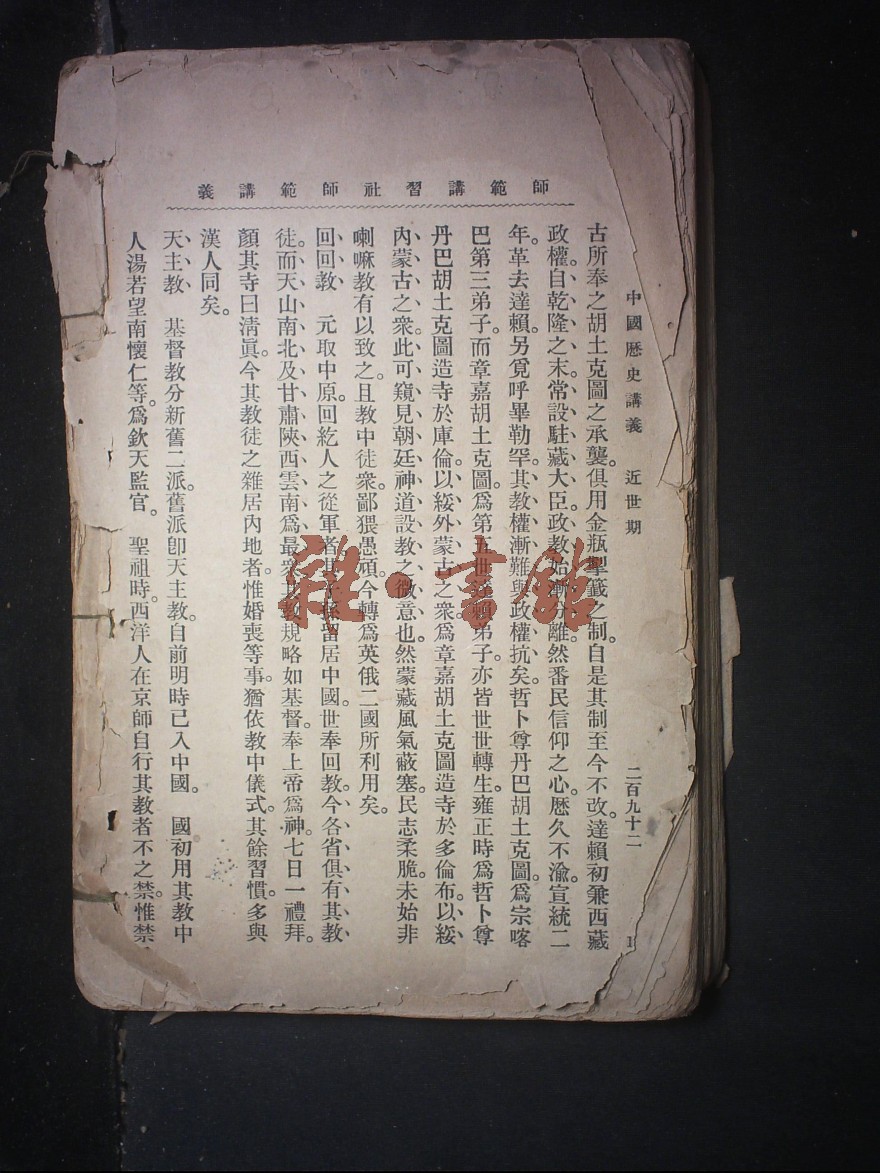 師範講習社師範講義
中國歷史講義 近世期 二百九十二 1
古所奉之胡土克圖之承襲。俱用金瓶掣籤之制。自是其制至今不改。達賴初兼西藏
政權。自乾隆之末。常設駐藏大臣。政教始漸分離。然番民信仰之心。歷久不渝。宣統二
年。革去達賴。另覓呼畢勒罕。其教權漸難與政權抗矣。哲卜尊丹巴胡土克圖。爲宗喀
巴第三弟子。而章嘉胡土克圖。爲第五世達賴弟子。亦皆世世轉生。雍正時。爲哲卜尊
丹巴胡土克圖造寺於庫倫。以綏外蒙古之衆。爲章嘉胡土克圖造寺於多倫布。以綏
內蒙古之衆。此可窺見朝廷神道設教之微意也。然蒙藏風氣蔽塞。民志柔脆。未始非
喇嘛教有以致之。且教中徒衆。鄙猥愚頑。今轉爲英俄二國所利用矣。
回回教 元取中原。回紇人之從軍者。其子孫留居中國。世奉回教。今各省俱有其教
徒。而天山南北及甘肅陝西雲南爲最衆。其教規略如基督。奉上帝爲神。七日一禮拜。
顏其寺曰清眞。今其教徒之雜居內地者。惟婚喪等事。猶依教中儀式。其餘習慣。多與
漢人同矣。
天主教 基督教分新舊二派。舊派卽天主教。自前明時已入中國。 國初用其教中
人湯若望南懷仁等。爲欽天監官。 聖祖時。西洋人在京師自行其教者不之禁。惟禁
雜·書館